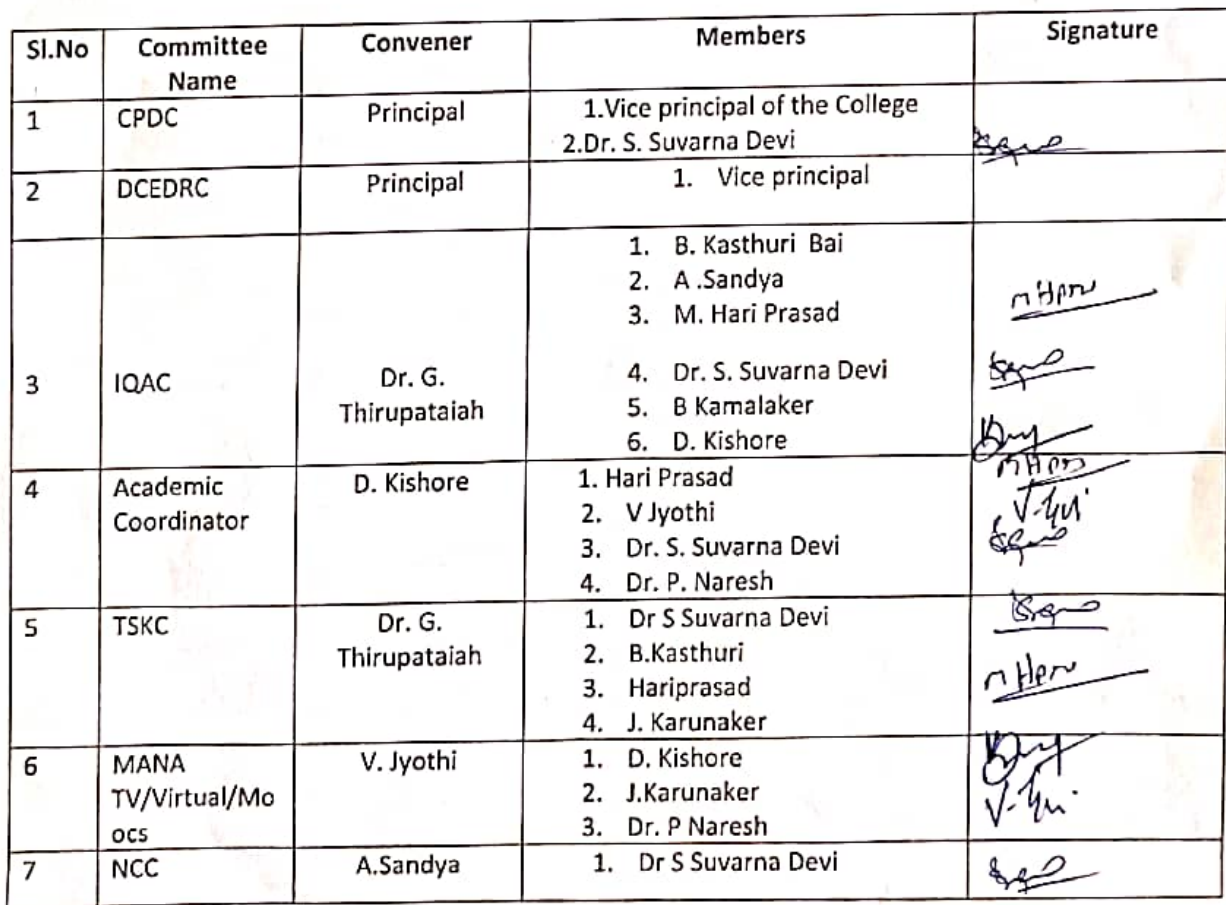 Sl.No Committee Name Convener Members Signature
1 CPDC Principal 1.Vice principal of the College
2.Dr. S. Suvarna Devi
2 DCEDRC Principal 1. Vice principal
1. B. Kasthuri Bai
2. A .Sandya
3. M. Hari Prasad
3 IQAC Dr. G. Thirupataiah 4. Dr. S. Suvarna Devi
5. B Kamalaker
6. D. Kishore
4 Academic Coordinator D. Kishore 1. Hari Prasad
2. V Jyothi
3. Dr. S. Suvarna Devi
4. Dr. P. Naresh
5 TSKC Dr. G. Thirupataiah 1. Dr S Suvarna Devi
2. B.Kasthuri
3. Hariprasad
4. J. Karunaker
6 MANA TV/Virtual/Moocs V. Jyothi 1. D. Kishore
2. J.Karunaker
3. Dr. P Naresh
7 NCC A.Sandya 1. Dr S Suvarna Devi